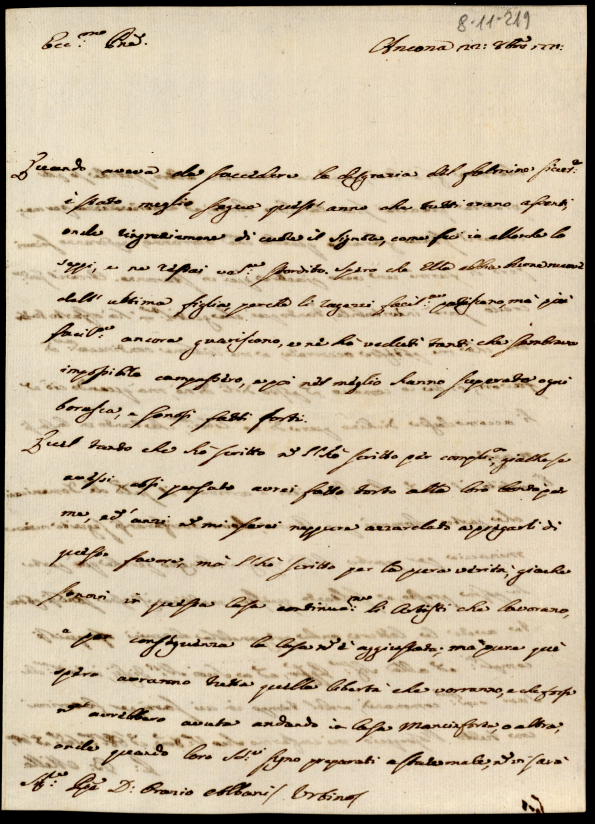 8-11-219
Ecc.mo Pne.
Ancona 22: 8bre
Quando aveva da succedere la disgrazia del
è stato meglio segua quest'anno che tutti erano assenti,
onde ringraziamone di cuore il Signore, come feci io allorchè lo
seppi, e ne restai stordito. Spero che Ella abbia buone nuove
dell'ultima figlia, perchè li ragazzi facil.te patiscono, mà più
facil.te ancora guariscono, e ne hò veduti tanti, che sembrava
impossibile campassero, e poi nel meglio hanno superato ogni
borasca, e sonosi fatti forti.
Quel tanto che hò scritto n. l'hò scritto per compli.to, giacchè se
avessi così pensato avrei fatto torto alla loro bontà per
me, ed anzi n. mi sarei neppure azzardato a pregarli di
questo favore, mà l'hò scritto per la pura verità, giacchè
sonovi in questa Casa continua.te li Artisti che lavorano,
e per conseguenza la Casa n. è aggiustata; mà pure quì
spero avranno tutta quella libertà che vorranno, e che forse
n. avrebbero avuta andando in Casa Manciforte, o altra,
onde quando loro Sig.ri siano preparati a star male, n. vi sarà
D: Orazio Albani / Urbino /